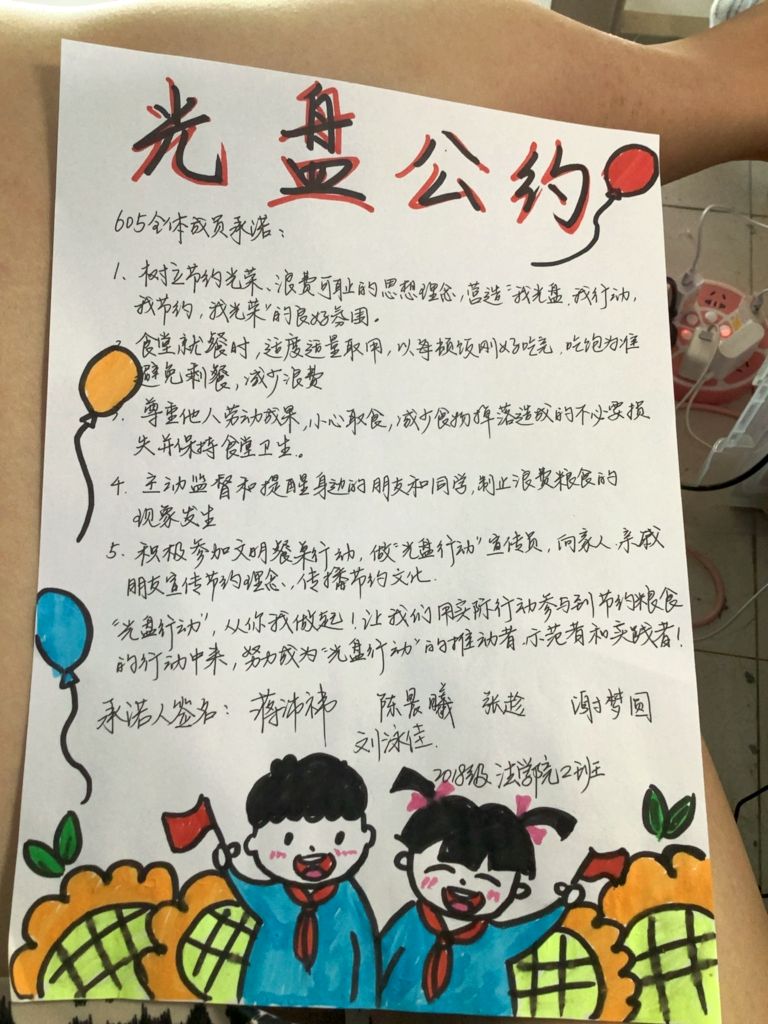 光盘公约
605全体成员承诺：
1. 树立节约光荣、浪费可耻的思想理念，营造“我光盘、我行动，
我节约，我光荣”的良好氛围。
2. 食堂就餐时，适度适量取用，以每顿饭刚好吃完，吃饱为准
避免剩餐，减少浪费
3. 尊重他人劳动成果，小心取食，减少食物掉落造成的不必要损
失并保持食堂卫生。
4. 主动监督和提醒身边的朋友和同学，制止浪费粮食的
现象发生
5. 积极参加文明餐桌行动，做“光盘行动”宣传员，向家人、亲戚
朋友宣传节约理念，传播节约文化.
“光盘行动”，从你我做起！让我们用实际行动参与到节约粮食
的行动中来，努力成为“光盘行动”的推动者、示范者和实践者！
承诺人签名：蒋沛祎 陈晨曦 张趁 谢梦圆
刘泳佳.
2018级法学院2班